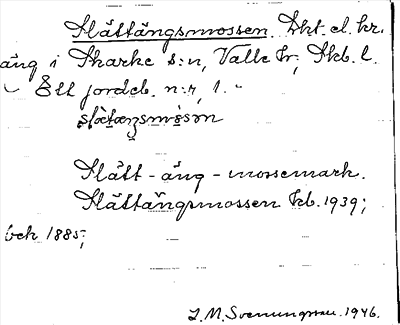 Slättängsmossen. Dkt. el. kr.
äng i Skarke s:n, Valle hr, Skb. l.
– Ett jordeb. n:r, 1. –
Slått - äng - mossemark.
Slättängsmossen kb. 1939;
bek 1885;
J. M. Svenungsson. 1946.